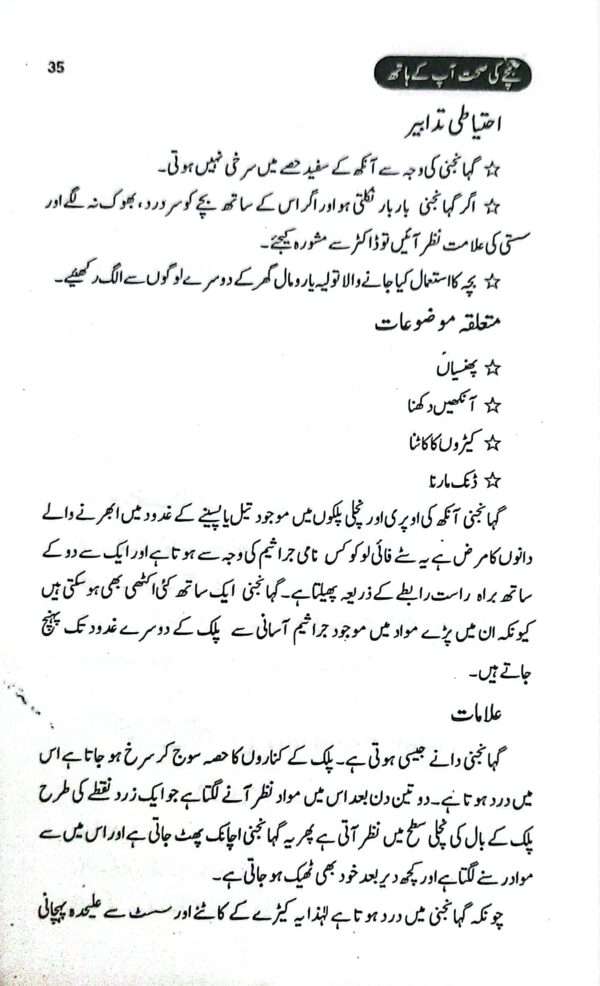 35
بچے کی صحت آپ کے ہاتھ
احتیاطی تدابیر
☆ گہانجنی کی وجہ سے آنکھ کے سفید حصے میں سرخی نہیں ہوتی۔
☆ اگر گہانجنی بار بار نکلتی ہو اور اگر اس کے ساتھ بچے کو سر درد، بھوک نہ لگے اور
سستی کی علامت نظر آئیں تو ڈاکٹر سے مشورہ کیجئے۔
☆ بچہ کا استعمال کیا جانے والا تولیہ یا رومال گھر کے دوسرے لوگوں سے الگ رکھئیے۔
متعلقہ موضوعات
☆ پھنسیاں
☆ آنکھیں دکھنا
☆ کیڑوں کا کاٹنا
☆ ڈنک مارنا
گہانجنی آنکھ کی اوپری اور نچلی پلکوں میں موجود تیل یا پسینے کے غدود میں ابھرنے والے
دانوں کا مرض ہے یہ سٹے فائی لوکوکس نامی جراثیم کی وجہ سے ہوتا ہے اور ایک سے دو کے
ساتھ براہ راست رابطے کے ذریعہ پھیلتا ہے۔ گہانجنی ایک ساتھ کئی اکٹھی بھی ہو سکتی ہیں
کیونکہ ان میں پڑے مواد میں موجود جراثیم آسانی سے پلک کے دوسرے غدود تک پہنچ
جاتے ہیں۔
علامات
گہانجنی دانے جیسی ہوتی ہے۔ پلک کے کناروں کا حصہ سوج کر سرخ ہو جاتا ہے اس
میں درد ہوتا ہے۔ دو تین دن بعد اس میں مواد نظر آنے لگتا ہے جو ایک زرد نقطے کی طرح
پلک کے بال کی نچلی سطح میں نظر آتی ہے پھر یہ گہانجنی اچانک پھٹ جاتی ہے اور اس میں سے
مواد رسنے لگتا ہے اور کچھ دیر بعد خود بھی ٹھیک ہو جاتی ہے۔
چونکہ گہانجنی میں درد ہوتا ہے لہٰذا یہ کیڑے کے کاٹنے اور سسٹ سے علیحدہ پہچانی